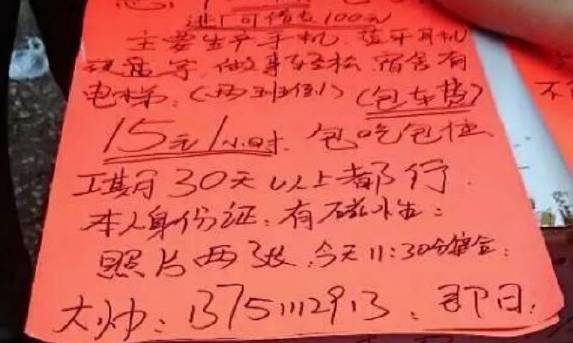 进厂可借支100元
主要生产手机 蓝牙耳机
做事轻松 宿舍有
电梯:(两班倒)(包车费)
15元/小时 包吃包住
工期30天以上都行.
本人身份证:有磁性:
照片两张:今天11:30分集合:
大帅:13751112913:即日: